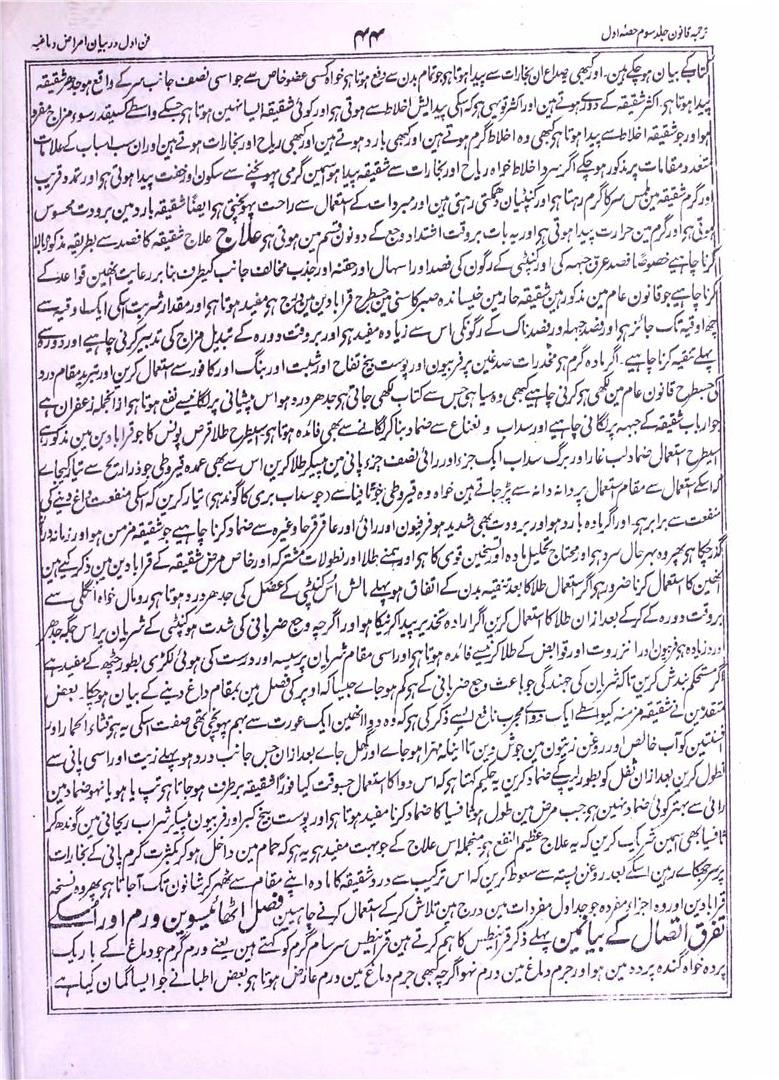 ترجمہ قانون جلد سوم حصہ اول ۴۴ فن اول در بیان امراض دماغیہ
کتاب کے بیان ہو چکے ہین۔ اور کبھی صداع ان بخارات سے پیدا ہوتا ہو جو تمام بدن سے رفع ہوتا ہو خواہ کسی عضو خاص سے جو اسی نصف جانب سر کے واقع ہو جدھر شقیقہ
پیدا ہوتا ہو اکثر شقیقہ کے دورے ہوتے ہین اور اکثر تو یہی ہو کہ اسکی پیدایش اخلاط سے ہوتی ہو اور کوئی شقیقہ ایسا نہین ہوتا ہو جسکے واسطے کسیقدر سوء مزاج مفرد
ہو اور جو شقیقہ اخلاط سے پیدا ہوتا ہو کبھی وہ اخلاط گرم ہوتے ہین اور کبھی بارد ہوتے ہین اور کبھی ریاح اور بخارات ہوتے ہین اور ان سب اسباب کے علامات
متعدد مقامات پر مذکور ہو چکے اگر سرد اخلاط خواہ ریاح اور بخارات سے شقیقہ پیدا ہو اسمین گرمی پہونچنے سے سکون و خفت پیدا ہوتی ہو اور تمدد قریب
اور گرم شقیقہ مین لمس سر کا گرم رہتا ہو اور کنپٹیان دھمکتی رہتی ہین اور مبردات کے استعمال سے راحت پہونچتی ہو ایضاً شقیقہ بارد مین برودت محسوس
ہوتی ہو اور گرم مین حرارت پیدا ہوتی ہو اور یہ بات بروقت اشتداد وجع کے دونون قسم مین ہوتی ہو علاج علاج شقیقہ کا فصد سے بطریقہ مذکورہ بالا
کرنا چاہیے خصوصاً فصد عرق جبہہ کی اور کنپٹی کے رگون کی فصد اور اسہال اور حقنہ اور جذب مخالف جانب کیطرف بنا بر رعایت انھین قواعد کے
کرنا چاہیے جو قانون عام مین مذکور ہین شقیقہ حار مین خیساندہ صبر کاسنی مین جسطرح قرابادین مین درج ہو مفید ہوتا ہو اور مقدار شربت اسکی ایک اوقیہ سے
چھ اوقیہ تک جائز ہو اور فصد جبہہ اور فصد ناک کے رگونکی اس سے زیادہ مفید ہو اور بروقت دورہ کے تبدیل مزاج کی تدبیر کرنی چاہیے اور دورے
پہلے تنقیہ کرنا چاہیے۔ اگر مادہ گرم ہو مخدرات صدغین پر فربیون اور پوست بیخ تفاح اور شبت اور بنگ اور کافور سے استعمال کرین اور تبرید مقام درد
کی جسطرح قانون عام مین لکھی ہو کرنی چاہیے کبھی وہ سیاہی جس سے کتاب لکھی جاتی ہو جدھر درد ہو اس پیشانی پر لگانیسے نفع ہوتا ہو ازانجملہ زعفران ہے
جو ارباب شقیقہ کے جبہہ پر لگانی چاہیے اور سداب و نعناع سے ضماد بنا کر لگانے سے بھی فائدہ ہوتا ہو اسیطرح طلا قرص پولس کا جو قرابادین مین مذکور ہے
اسیطرح استعمال ضماد لب غار اور برگ سداب ایک جزء اور رائی نصف جزء پانی مین پیسکر طلا کرین اس سے بھی عمدہ قیروطی جو ذراریح سے تیار کیجاے
اور اسکے استعمال سے مقام استعمال پر دانہ دانہ سے پڑ جاتے ہین خواہ وہ قیروطی جو ثافیا سے (جو سداب بری کا گوند ہی) تیار کرین کہ اسکی منفعت داغ دینے کی
منفعت سے برابر ہو۔ اور اگر مادہ بارد ہو اور برودت بھی شدید ہو فرفیون اور رائی اور عاقرقرحا وغیرہ سے ضماد کرنا چاہیے جو شقیقہ مزمن ہو اور زمانہ دراز
گذر چکا ہو پھر وہ بہر حال سرد ہو اور محتاج تحلیل مادہ اور تسخین قوی کا ہو اور ہمنے طلا اور نطولات مشترکہ اور خاص مرض شقیقہ کے قرابادین مین ذکر کیے ہین
انھین کا استعمال کرنا ضرور ہو اگر استعمال طلا کا بعد تنقیہ بدن کے اتفاق ہو پہلے مالش اُس کنپٹی کے عضل کی جدھر درد ہوتا ہو رومال خواہ انگلی سے
بروقت دورہ کے کرکے بعد ازان طلا کا استعمال کرین اگر ارادہ تخدیر پیدا کرنیکا ہو اور اگرچہ وجع ضربانی کی شدت ہو کنپٹی کے شریان پر اس جگہ جدھر
درد زیادہ ہو فربیون درا نزروت اور قوابض کے طلا کرنیسے فائدہ ہوتا ہو اور اسی مقام شریان پر سیسہ اور درست کی ہوئی لکڑی بطور تختہ کے مفید ہے
اگر مستحکم بندش کرین تاکہ شریان کی جہندگی جو باعث وجع ضربانی کے ہو کم ہو جاے جیسا کہ اوپر کی فصل مین بمقام داغ دینے کے بیان ہو چکا۔ بعض
متقدمین نے شقیقہ مزمنہ کیواسطے ایک دواے مجرب نافع ایسے ذکر کی ہو کہ وہ دوا انھین ایک عورت سے بہم پہونچی تھی صفت اسکی یہ ہو قثاء الحمار اور
افسنتین کو آب خالص اور روغن زیتون مین جوش دین تا اینکہ مہرا ہو جاے اور گھل جاے بعد ازان جس جانب درد ہو پہلے زیت اور اسی پانی سے
نطول کرین بعد ازان ثفل کو بطور لیپ کے ضماد کرین یہ حکیم کہتا ہو کہ اس دوا کا استعمال جسوقت کیا فوراً شقیقہ برطرف ہو جاتا ہو تپ یا ہو یا نہو ضماد مین
رائی سے بہتر کوئی ضماد نہین ہو جب مرض مین طول ہو ثافسیا کا ضماد کرنا مفید ہوتا ہو اور پوست بیخ کبر اور فربیون پیسکر شراب ریحانی مین گوندھ کر
ثافیا بھی اسمین شریک کرین کہ یہ علاج عظیم النفع ہو منجملہ اس علاج کے جو بہت مفید ہو یہ ہو کہ حمام مین داخل ہو کر بکثرت گرم پانی کے بخارات
پر سر جھکاے رہین اسکے بعد روغن پستہ سے سعوط کرین کہ اس ترکیب سے درد شقیقہ کا مادہ اپنے مقام سے ٹھہر کر شانون تک آ جاتا ہو پھر وہ نسخہ
قرابادین اور وہ اجزاء مفردہ جو جداول مفردات مین درج ہین تلاش کرکے استعمال کرنے چاہیین فصل اٹھائیسوین ورم اور اسکے
تفرق اتصال کے بیان مین پہلے ذکر قرانیطس کا ہم کرتے ہین قرانیطس سرسام گرم کو کہتے ہین یعنے ورم گرم جو دماغ کے باریک
پردہ خواہ گندہ پردہ مین ہو اور جرم دماغ مین ورم نہو اگرچہ کبھی جرم دماغ مین ورم عارض ہوتا ہو بعض اطبا نے جو ایسا گمان کیا ہے